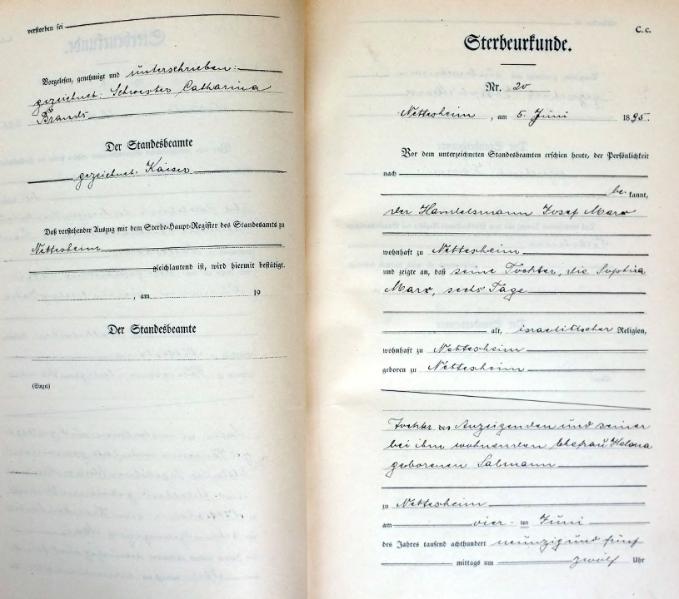 verstorben sei
Vorgelesen, genehmigt und unterschrieben:
gezeichnet: Schwester Catharina
Brands
Der Standesbeamte
gezeichnet: Kaiser
Daß vorstehender Auszug mit dem Sterbe-Haupt-Register des Standesamts zu
Nettesheim
gleichlautend ist, wird hiermit bestätigt.
, am 19
Der Standesbeamte
C. c.
Sterbeurkunde.
Nr. 20
Nettesheim, am 5. Juni 1895.
Vor dem unterzeichneten Standesbeamten erschien heute, der Persönlichkeit
nach
be kannt,
der Handelsmann Josef Marx
wohnhaft zu Nettesheim
und zeigte an, daß seine Tochter, die Sophia
Marx, sechs Tage
alt, israelitischer Religion,
wohnhaft zu Nettesheim
geboren zu Nettesheim
Tochter des Anzeigenden und seiner
bei ihm wohnenden Ehefrau Helena
geborenen Salmann
zu Nettesheim
am vier ten Juni
des Jahres tausend achthundert neunzig und fünf
mittags um zwölf Uhr